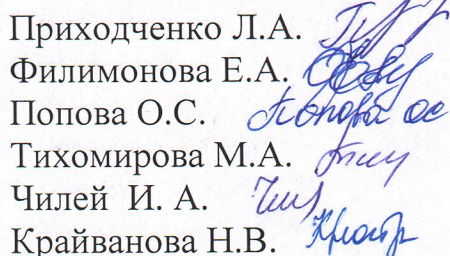 Приходченко Л.А.
Филимонова Е.А.
Попова О.С. Попова ос
Тихомирова М.А.
Чилей И. А.
Крайванова Н.В.